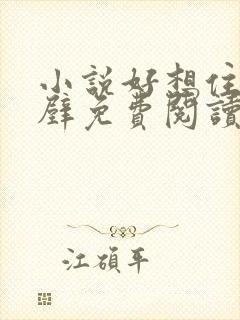 小說好想住
壁免費閱讀
江碩平